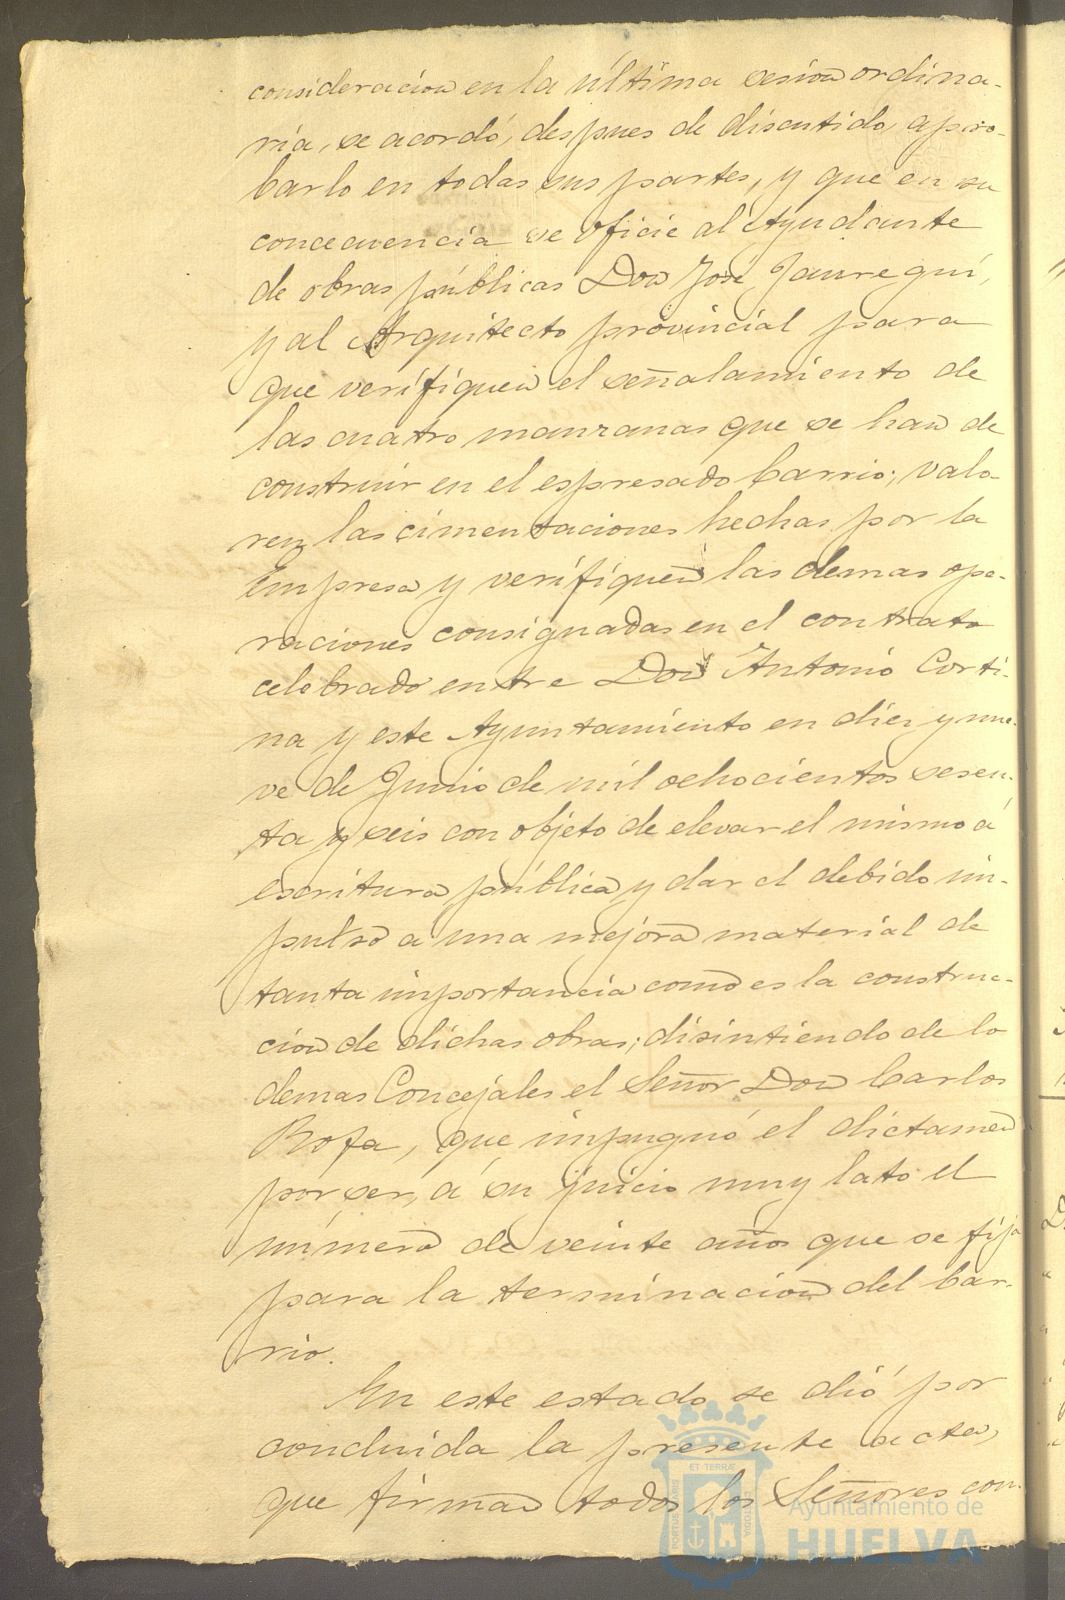 consideracion en la última sesion ordina-
ria, se acordó, despues de discutido, apro-
barlo en todas sus partes, y que en su
concecuencia se oficie al Ayudante
de obras públicas Don José Jauregui,
y al Arquitecto provincial para
que verifiquen el señalamiento de
las cuatro manzanas que se han de
construir en el espresado barrio; valo-
ren las cimentaciones hechas por la
Empresa y verifiquen las demas ope-
raciones consignadas en el contrato
celebrado entre Don Antonio Corti-
na y este Ayuntamiento en diez y nue-
ve de Junio de mil ochocientos sesen-
ta y seis con objeto de elevar el mismo á
escritura pública y dar el debido im-
pulso a una mejora material de
tanta importancia como es la construc-
cion de dichas obras; disintiendo de lo
demas Concejales el Señor Don Carlos
Rofa, que impugnó el dictamen
por ser, á su juicio muy lato el
número de veinte años que se fija
para la terminacion del bar-
rio.
En este estado se dió por
concluida la presente acta,
que firman todos los Señores con-
PORTUS MARIS ET TERRÆ CUSTODIA
Ayuntamiento de
HUELVA